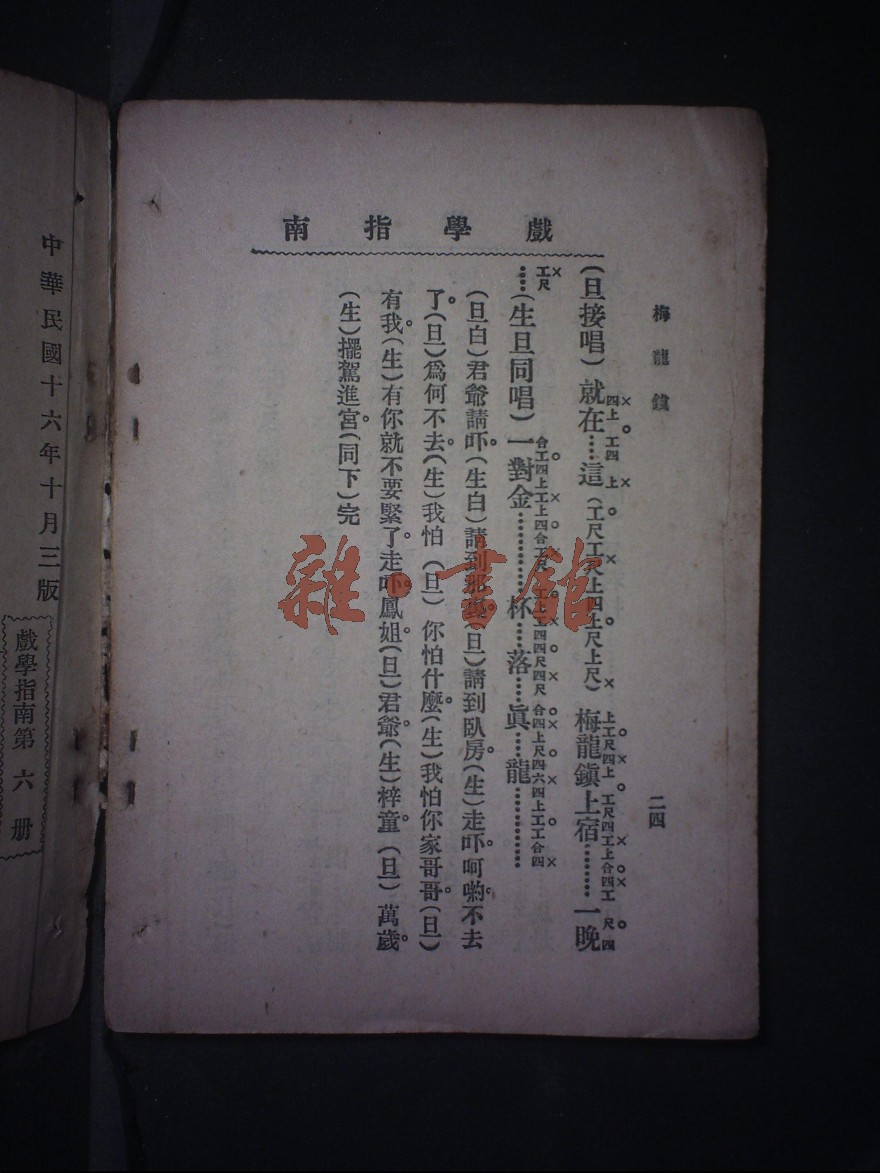 戲學指南
梅龍鎭
二四
(旦接唱)就在……這(工尺工尺上四上尺上尺)梅龍鎭上宿………一晚
……(生旦同唱)一對金…………杯……落……眞……龍…………
(旦白)君爺請吓(生白)請到那(旦)請到臥房。(生)走吓。呵喲。不去
了。(旦)爲何不去。(生)我怕(旦)你怕什麼。(生)我怕你家哥哥。(旦)
有我。(生)有你就不要緊了。走吓。鳳姐。(旦)君爺。(生)梓童。(旦)萬歲。
(生)擺駕進宮。(同下)完
中華民國十六年十月三版
戲學指南第六册
雜·書館